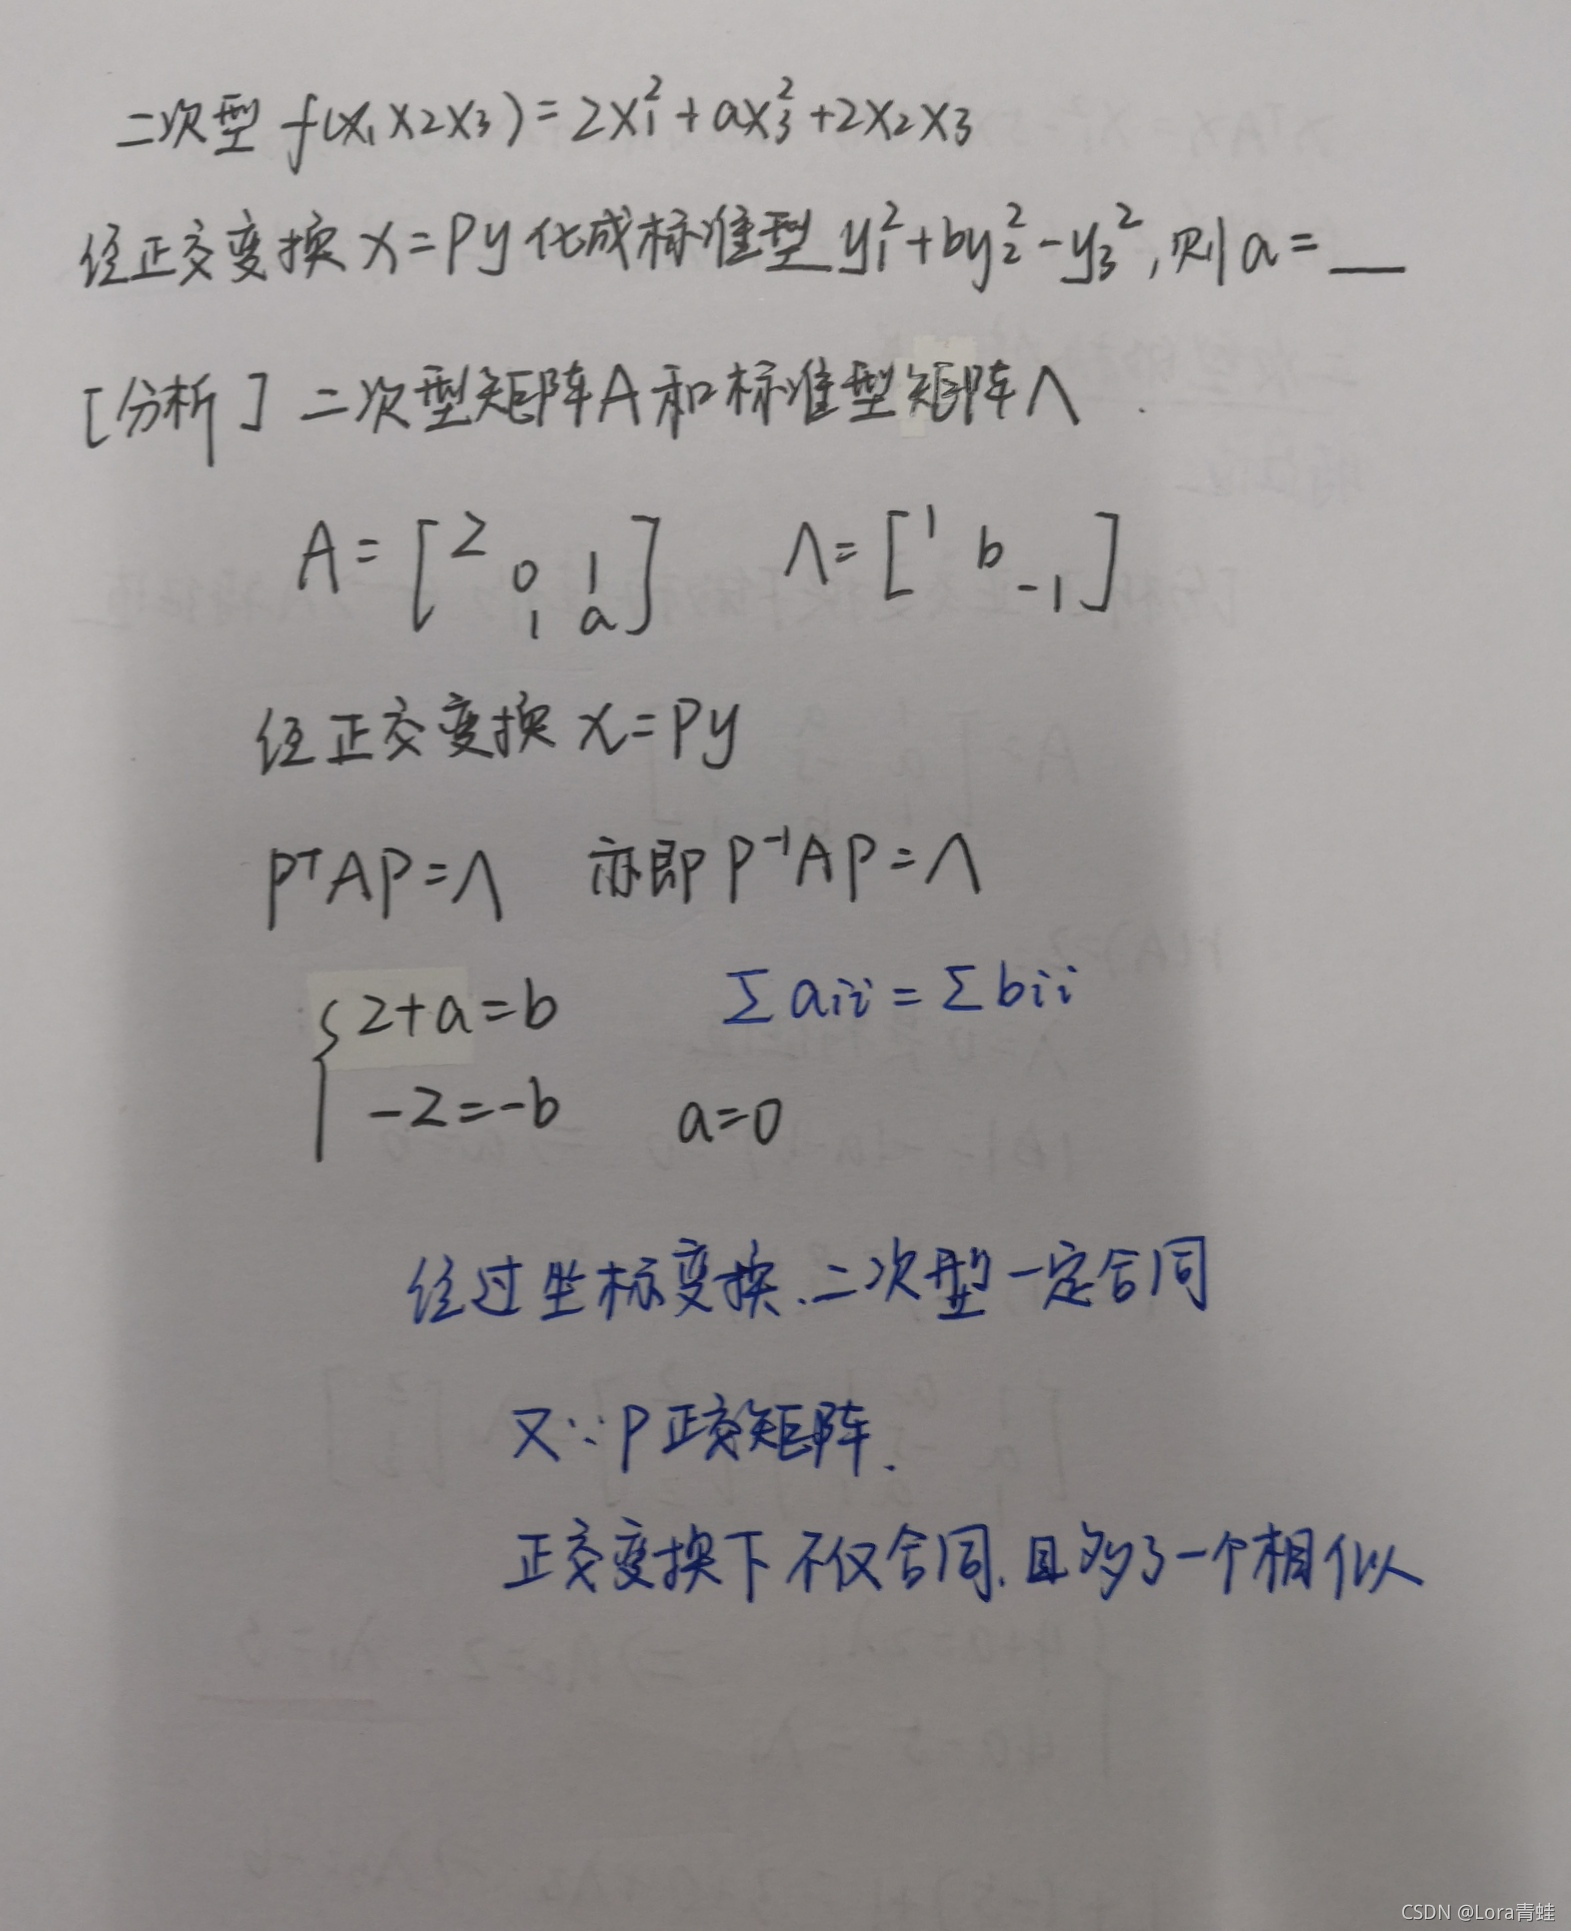 二次型 f(x₁x₂x₃)=2x₁²+ax₃²+2x₂x₃
经正交变换 x=Py 化成标准型 y₁²+by₂²-y₃²,则 a=__
[分析] 二次型矩阵A和标准型矩阵Λ
A=[2 0 1 1 a] Λ=[1 b -1]
经正交变换 x=Py
PᵀAP=Λ 亦即 P⁻¹AP=Λ
{2+a=b Σaii=Σbii
-2=-b a=0
经过坐标变换、二次型一定合同
又∵P正交矩阵.
正交变换下不仅合同.且多了一个相似
CSDN @Lora青蛙